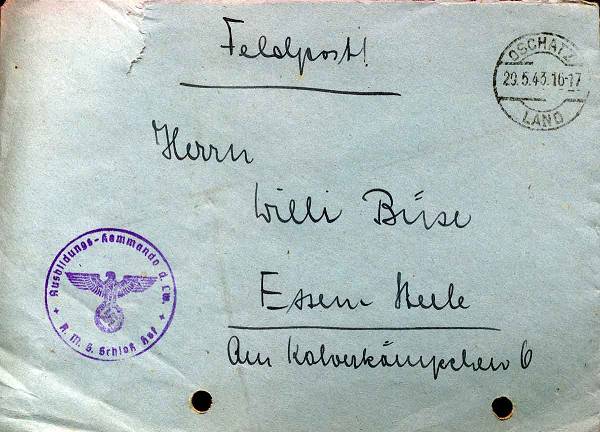 Feldpost!
OSCHATZ
29.5.43.16-17
LAND
Herrn
Willi Büse
Essen-Steele
Am Kalverkämpchen 6
Ausbildungs-Kommando d. Lw.
R. M. S. Schloß Hof